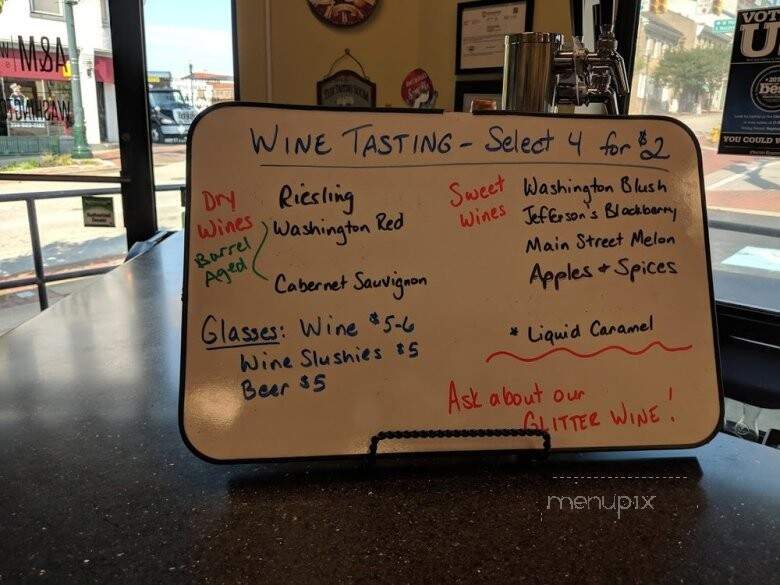 WINE TASTING - Select 4 for $2
Dry
Wines
Barrel
Aged
Riesling
Washington Red
Cabernet Sauvignon
Sweet
Wines
Washington Blush
Jefferson's Blackberry
Main Street Melon
Apples & Spices
* Liquid Caramel
Glasses: Wine $5-6
Wine Slushies $5
Beer $5
Ask about our
GLITTER WINE!
A&M
VOT
U
YOU COULD W
menupix